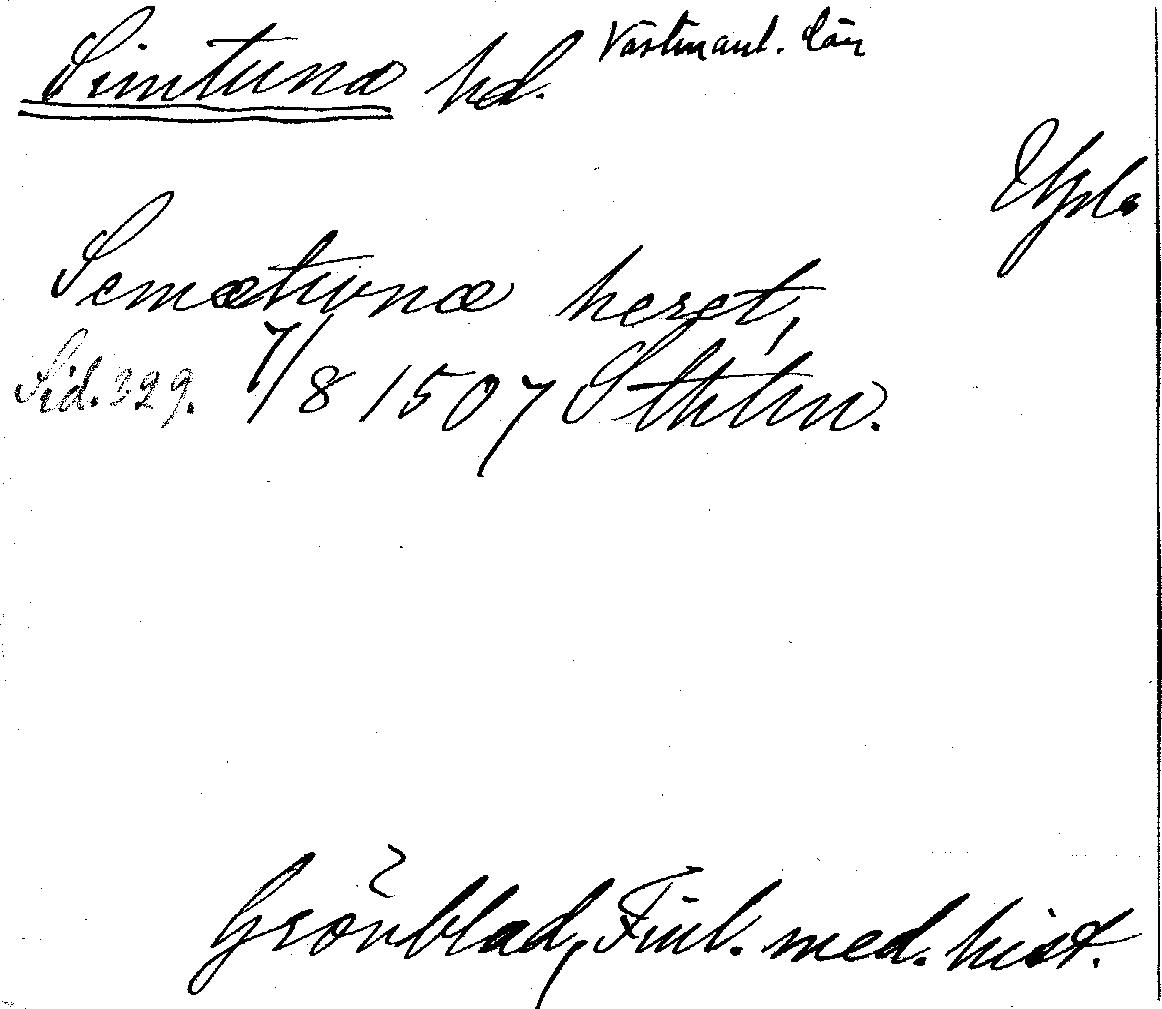 Simtuna hd. Västmanl. län
Upl.
Semætuna heret,
Sid. 329. 7/8 1507 Sthlm.
Grönblad, Finl. med. hist.